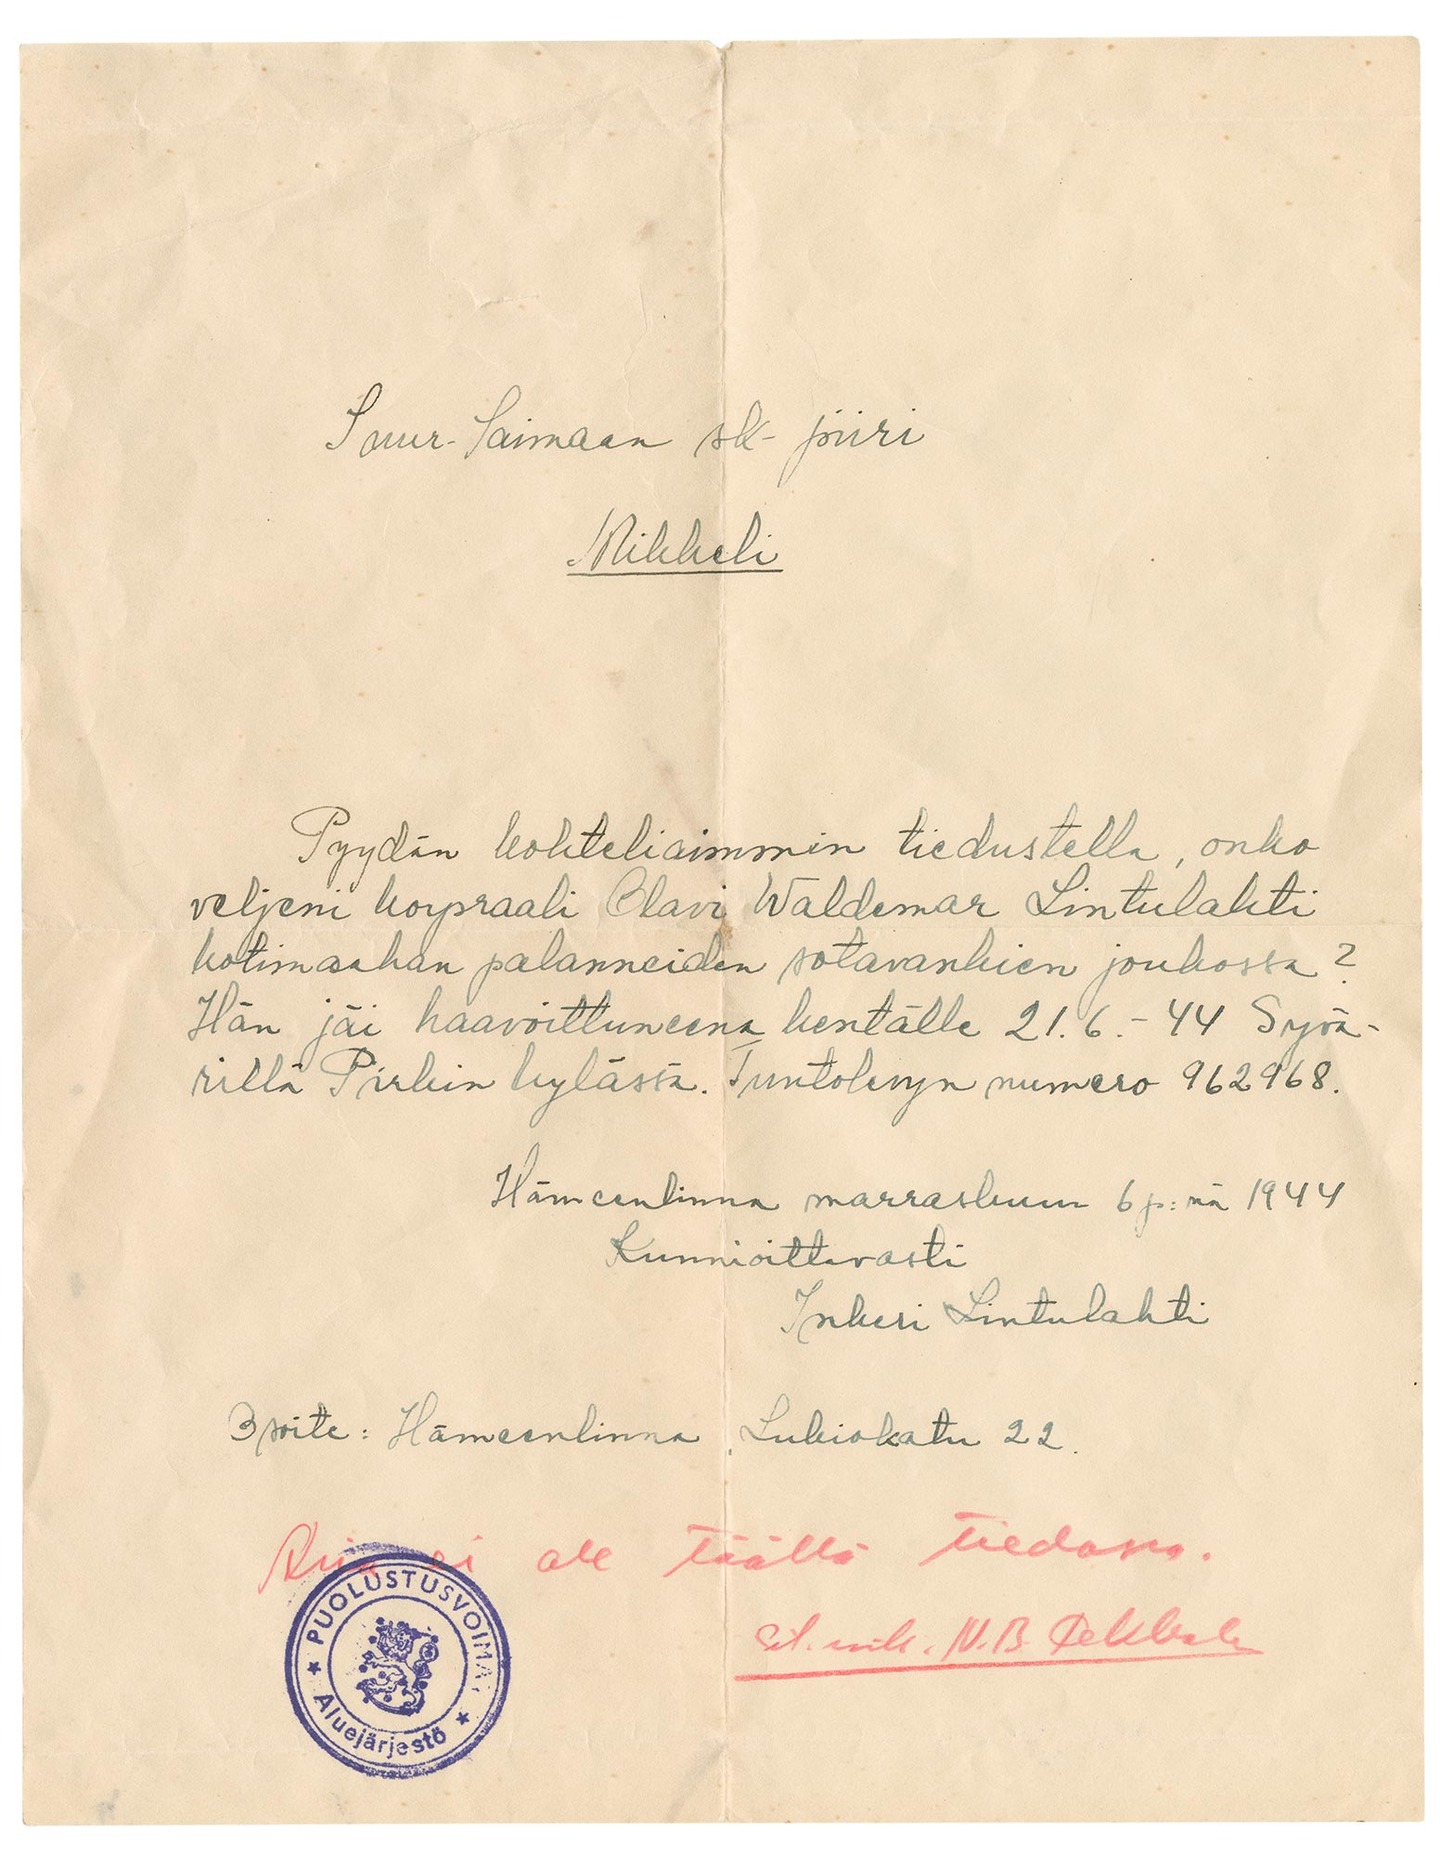 Suur-Saimaan sk- piiri
Mikkeli
Pyydän kohteliaimmin tiedustella, onko
veljeni korpraali Olavi Waldemar Lintulahti
kotimaahan palanneiden sotavankien joukossa?
Hän jäi haavoittuneena kentälle 21.6.-44 Syvä-
rillä Pirkin kylässä. Tuntolevyn numero 962968.
Hämeenlinna marraskuun 6 p:nä 1944
Kunnioittavasti
Inkeri Lintulahti
Osoite: Hämeenlinna, Lukiokatu 22.
ei ole täällä tiedossa.
PUOLUSTUSVOIMAT
Aluejärjestö